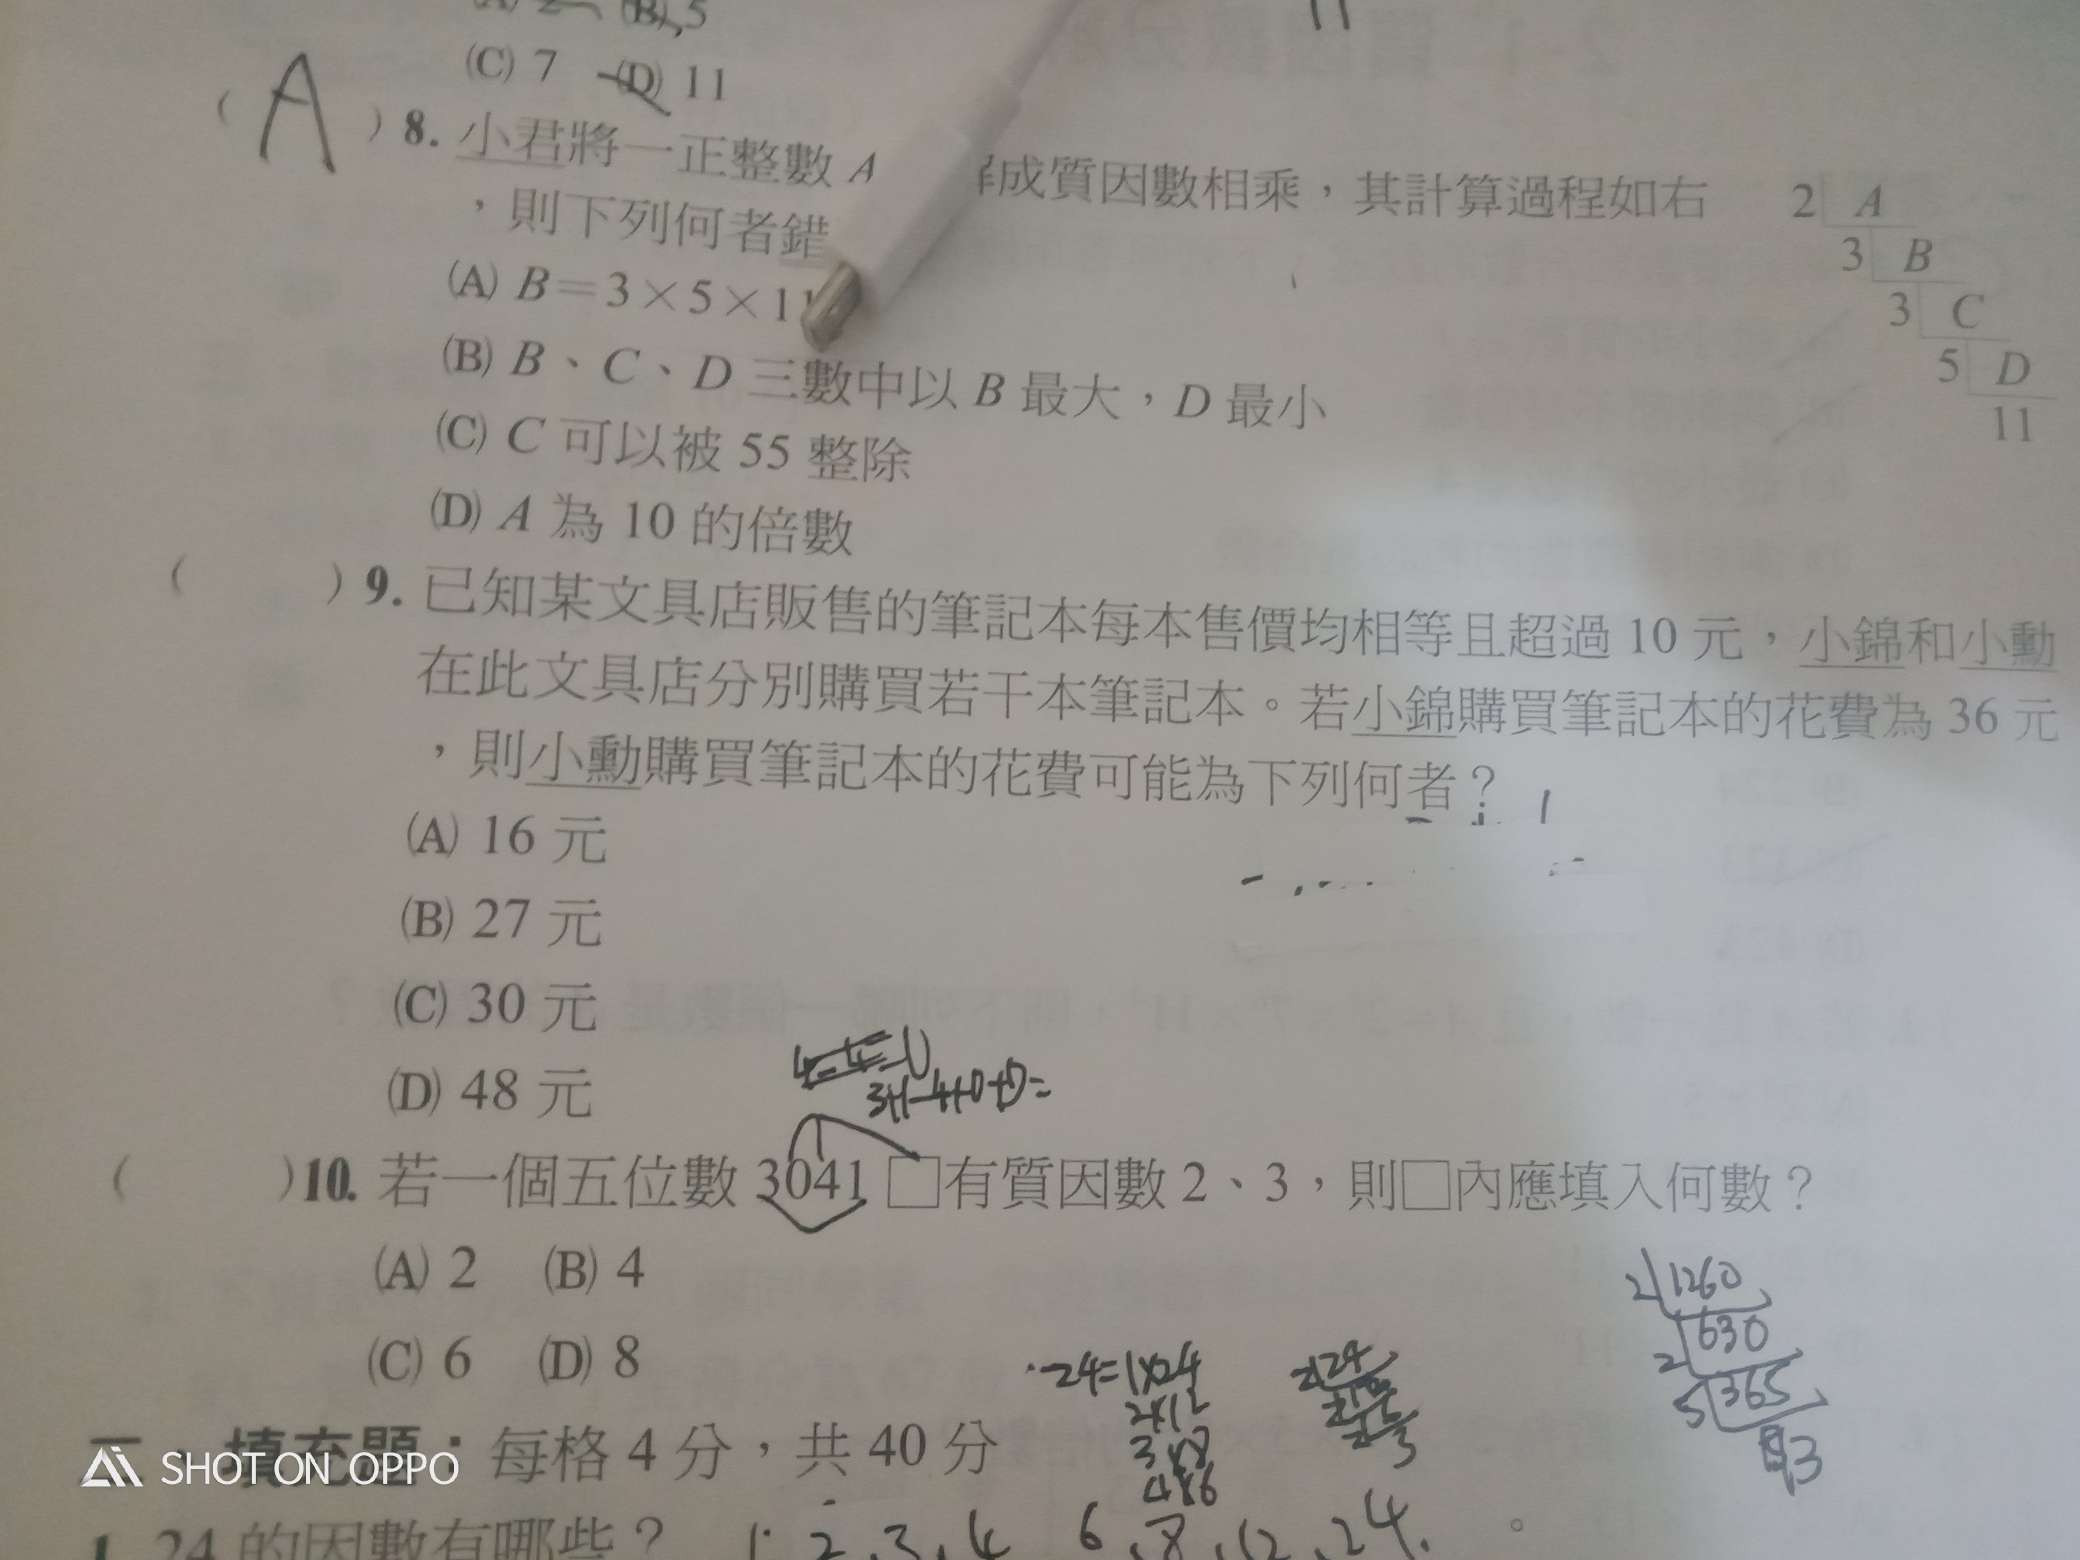 (B) 5
(C) 7 (D) 11
( A ) 8. 小君將一正整數 A 成質因數相乘，其計算過程如右
，則下列何者錯
(A) B=3×5×11
(B) B、C、D 三數中以 B 最大，D 最小
(C) C 可以被 55 整除
(D) A 為 10 的倍數
2 A
3 B
3 C
5 D
11
( ) 9. 已知某文具店販售的筆記本每本售價均相等且超過 10 元，小錦和小勳
在此文具店分別購買若干本筆記本。若小錦購買筆記本的花費為 36 元
，則小勳購買筆記本的花費可能為下列何者？
(A) 16 元
(B) 27 元
(C) 30 元
(D) 48 元
( ) 10. 若一個五位數 3041 □有質因數 2、3，則□內應填入何數？
(A) 2 (B) 4
(C) 6 (D) 8
24=1×24
2×12
3×8
4×6
2 1260
630
2
5 365
填充題：每格 4 分，共 40 分
SHOT ON OPPO
1. 24 的因數有哪些？ 1. 2、3、4 6、8、12、24. 。